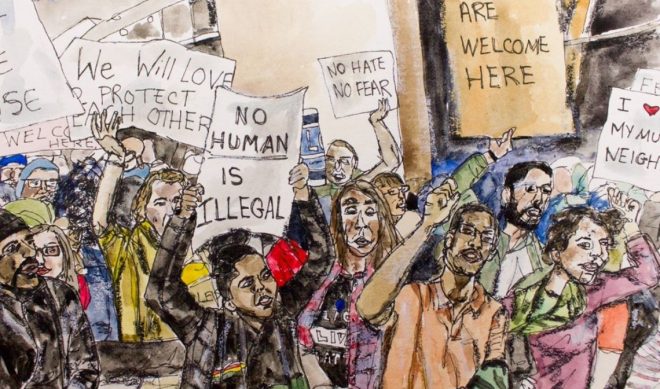 We Will LOVE
& PROTECT
EACH OTHER
WELCOME
HERE
NO
HUMAN
IS
ILLEGAL
NO HATE
NO FEAR
ARE
WELCOME
HERE
I ❤
MY MU
NEIGH